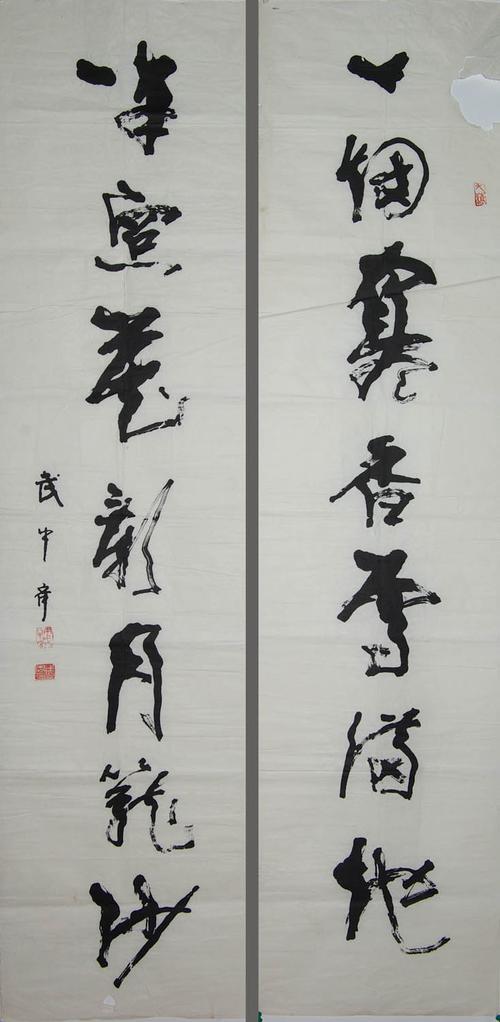 一個寒香雪滿地
半窗花影月籠沙
武中奇